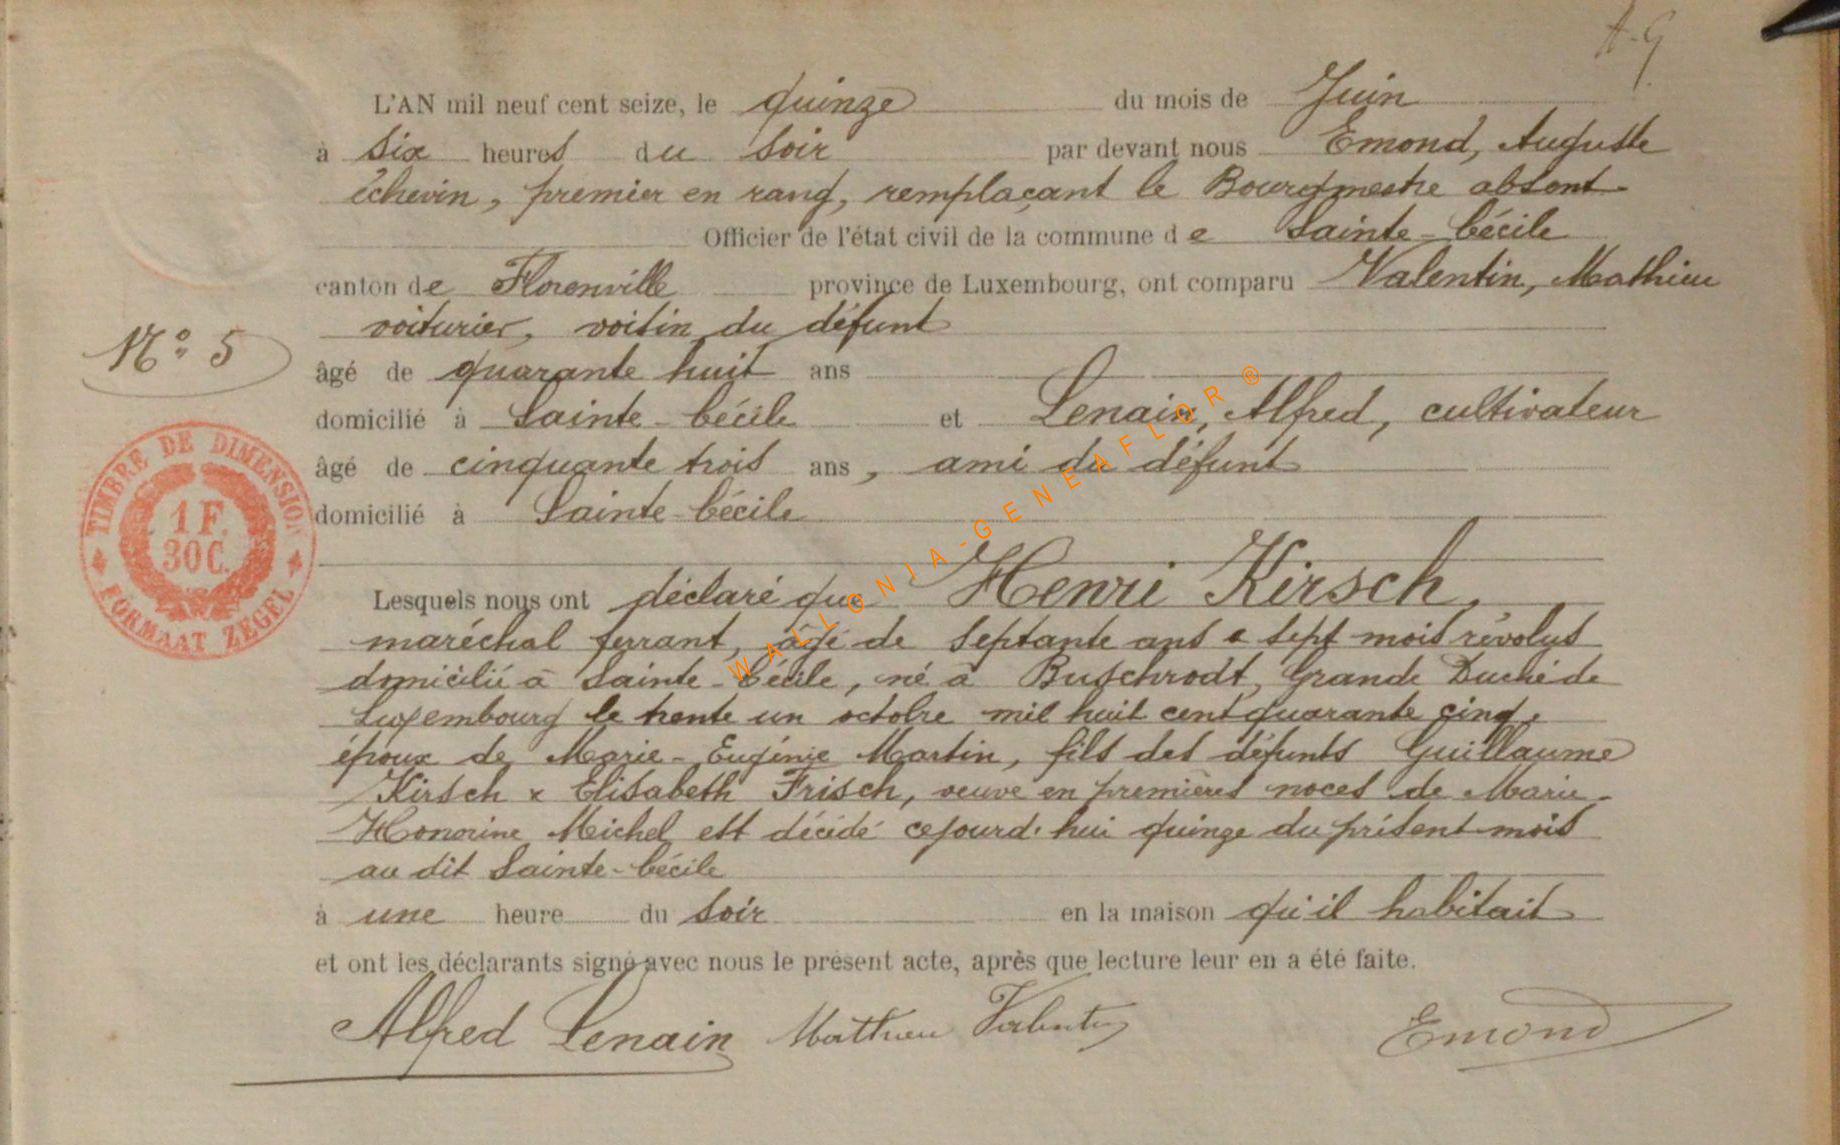 A-G
L'AN mil neuf cent seize, le quinze du mois de Juin
à six heures du soir par devant nous Emond, Auguste
échevin, premier en rang, remplaçant le Bourgmestre absent
Officier de l'état civil de la commune de Sainte-Cécile
canton de Florenville province de Luxembourg, ont comparu Valentin, Mathieu
voiturier, voisin du défunt
N° 5
âgé de quarante huit ans
domicilié à Sainte-Cécile et Lenain, Alfred, cultivateur
âgé de cinquante trois ans, ami du défunt
domicilié à Sainte-Cécile
TIMBRE DE DIMENSION
1 F.
30 C.
FORMAAT ZEGEL
Lesquels nous ont déclaré que Henri Kirsch,
maréchal ferrant, âgé de septante ans & sept mois révolus
domicilié à Sainte-Cécile, né à Buschrodt, Grande Duché de
Luxembourg le trente un octobre mil huit cent quarante cinq,
époux de Marie-Eugénie Martin, fils des défunts Guillaume
Kirsch & Elisabeth Frisch, veuve en premières noces de Marie-
Honorine Michel est décédé cejourd'hui quinze du présent mois
au dit Sainte-Cécile
à une heure du soir en la maison qu'il habitait
et ont les déclarants signé avec nous le présent acte, après que lecture leur en a été faite.
Alfred Lenain Mathieu Valentin Emond
WALLONIA-GENEAFLOR ®